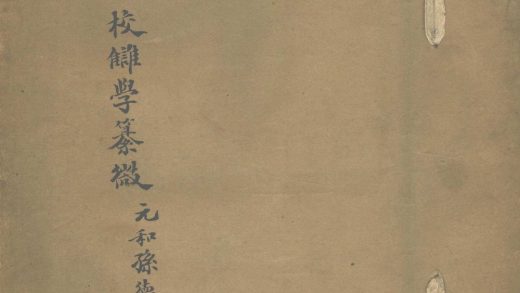 校讎學纂微
元和孫德